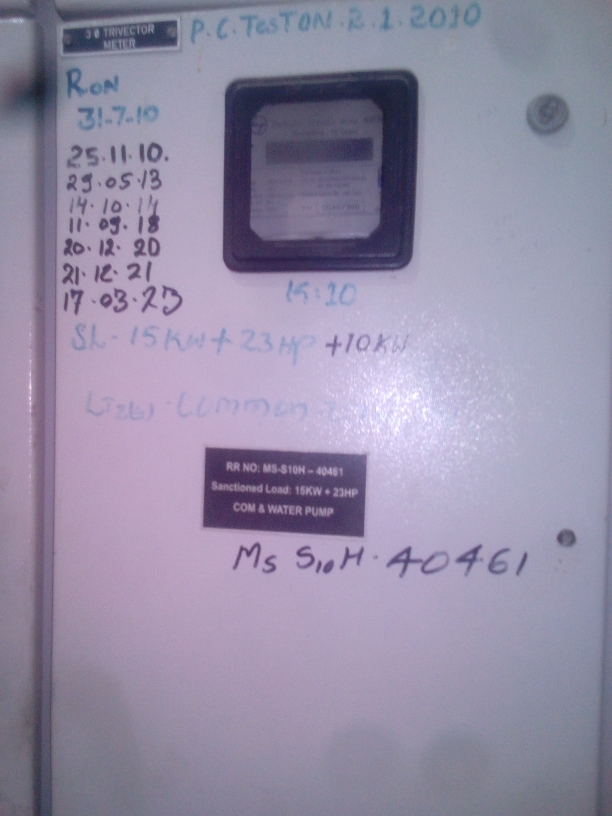 3 Ø TRIVECTOR
METER
P.C. TEST ON. 2.1.2010
RON
31-7-10
25.11.10.
29.05.13
14.10.14
11.09.18
20.12.20
21.12.21
17.03.23
SL-15KW+23HP+10KW
Common
RR NO: MS-S10H – 40461
Sanctioned Load: 15KW + 23HP
COM & WATER PUMP
MS S10H.40461